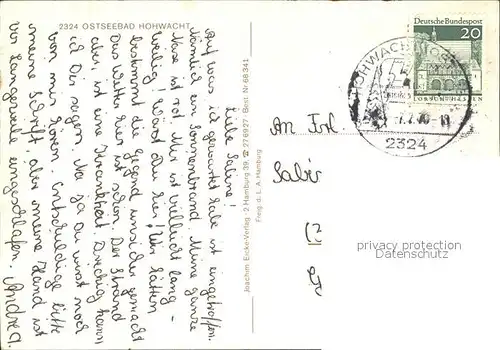 2324 OSTSEEBAD HOHWACHT
Liebe Sabine!
Auf was ich gewartet habe ist eingetroffen.
Nämlich ein Sonnenbrand. Meine ganze
Nase ist rot. Mir ist vielleicht lang-
weilig! Wärst du hier! Wir hätten
bestimmt die Gegend unsicher gemacht
Das Wetter hier ist schön. Der Strand
aber, ist eine Krankheit. Dreckig kann
ich Dir sagen. Na ja du wirst noch
von mir hören. Entschuldige bitte
meine Schrift aber meine Hand ist
vor Langeweile eingeschlafen.
Andrea
Joachim Eicke-Verlag · 2 Hamburg 39, ☎ 276927 Best.-Nr. 68341
Freig. d. L. A. Hamburg
Deutsche Bundespost
20
LORSCH/HESSEN
HOHWACHT
2324
An Frl.
Sabi
protected by copyright
Datenschutz